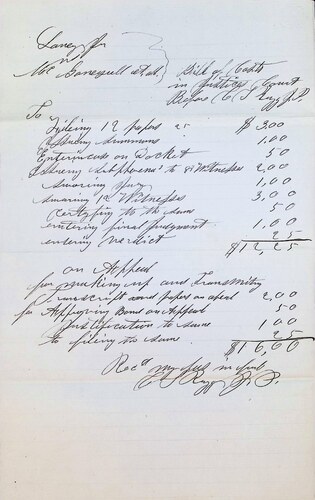 Laney Jr
vs
Mc et al. Bill of Costs
in Justices Court
Before E S J.P.
To
Filing 12 papers 25 $ 3.00
Issuing summons 1.00
Entering case on Docket 50
Issuing subpoenas to 8 Witnesses 2,00
swaring Jury 1,00
swaring 12 Witnesses 3,00
certifying to the same 50
entering final judgment 1,00
entering verdict 25
$12,25
on Appeal
for making up and Transmitg
Transcript and papers on apeal 2,00
for Approving Bond on Appeal 50
Justification to same 1 00
to filing the same 25
$16,00
Recd my fees in full
E S J. P.